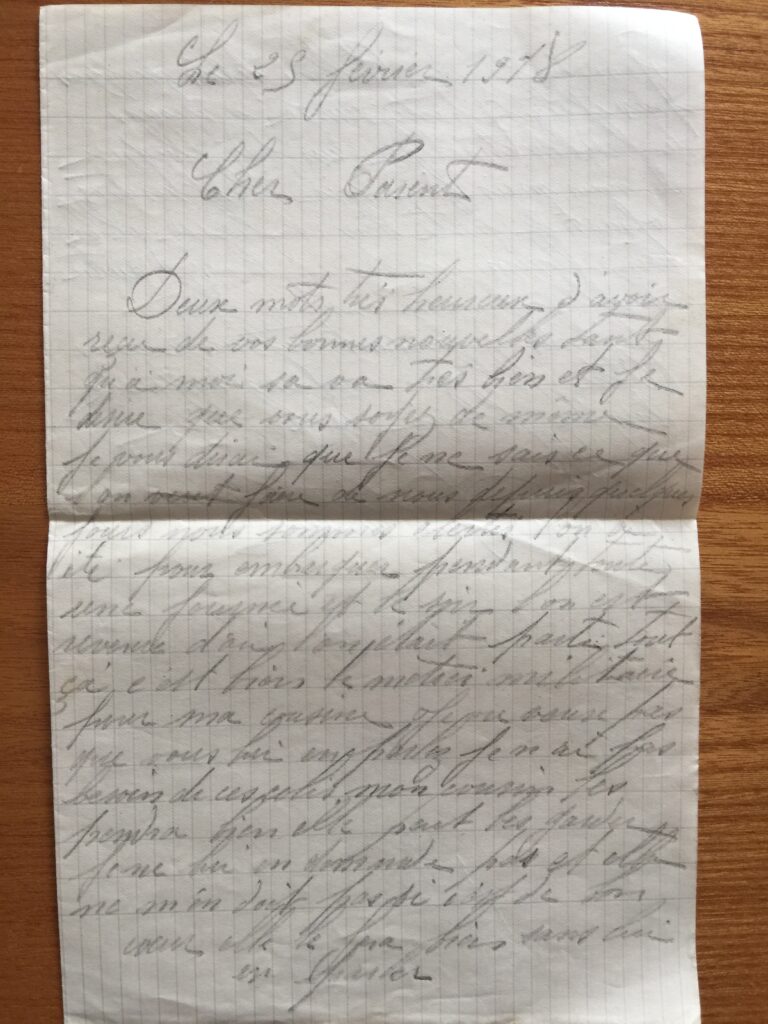 Le 25 février 1918
Cher Parent
Deux mots très heureux d'avoir
reçu de vos bonnes nouvelles tant
qu'a moi sa va très bien et je
pense que vous soyez de même
Je vous dirai que je ne sais ce que
l'on veut faire de nous depuis quelques
jours nous sommes l'on a
été pour embarquer pendant toute
une journée et le soir l'on est
revenu d'ou l'on était parti tout
ça c'est bien le métier militaire
pour ma cousine je ne veux pas
que vous lui en parlez je n'ai pas
besoin de ces colis mon cousin les
pendra bien elle peut les garder
je ne lui en demande pas et elle
ne m'en doit pas si c'est de bon
cœur elle le fera bien sans lui
en parler